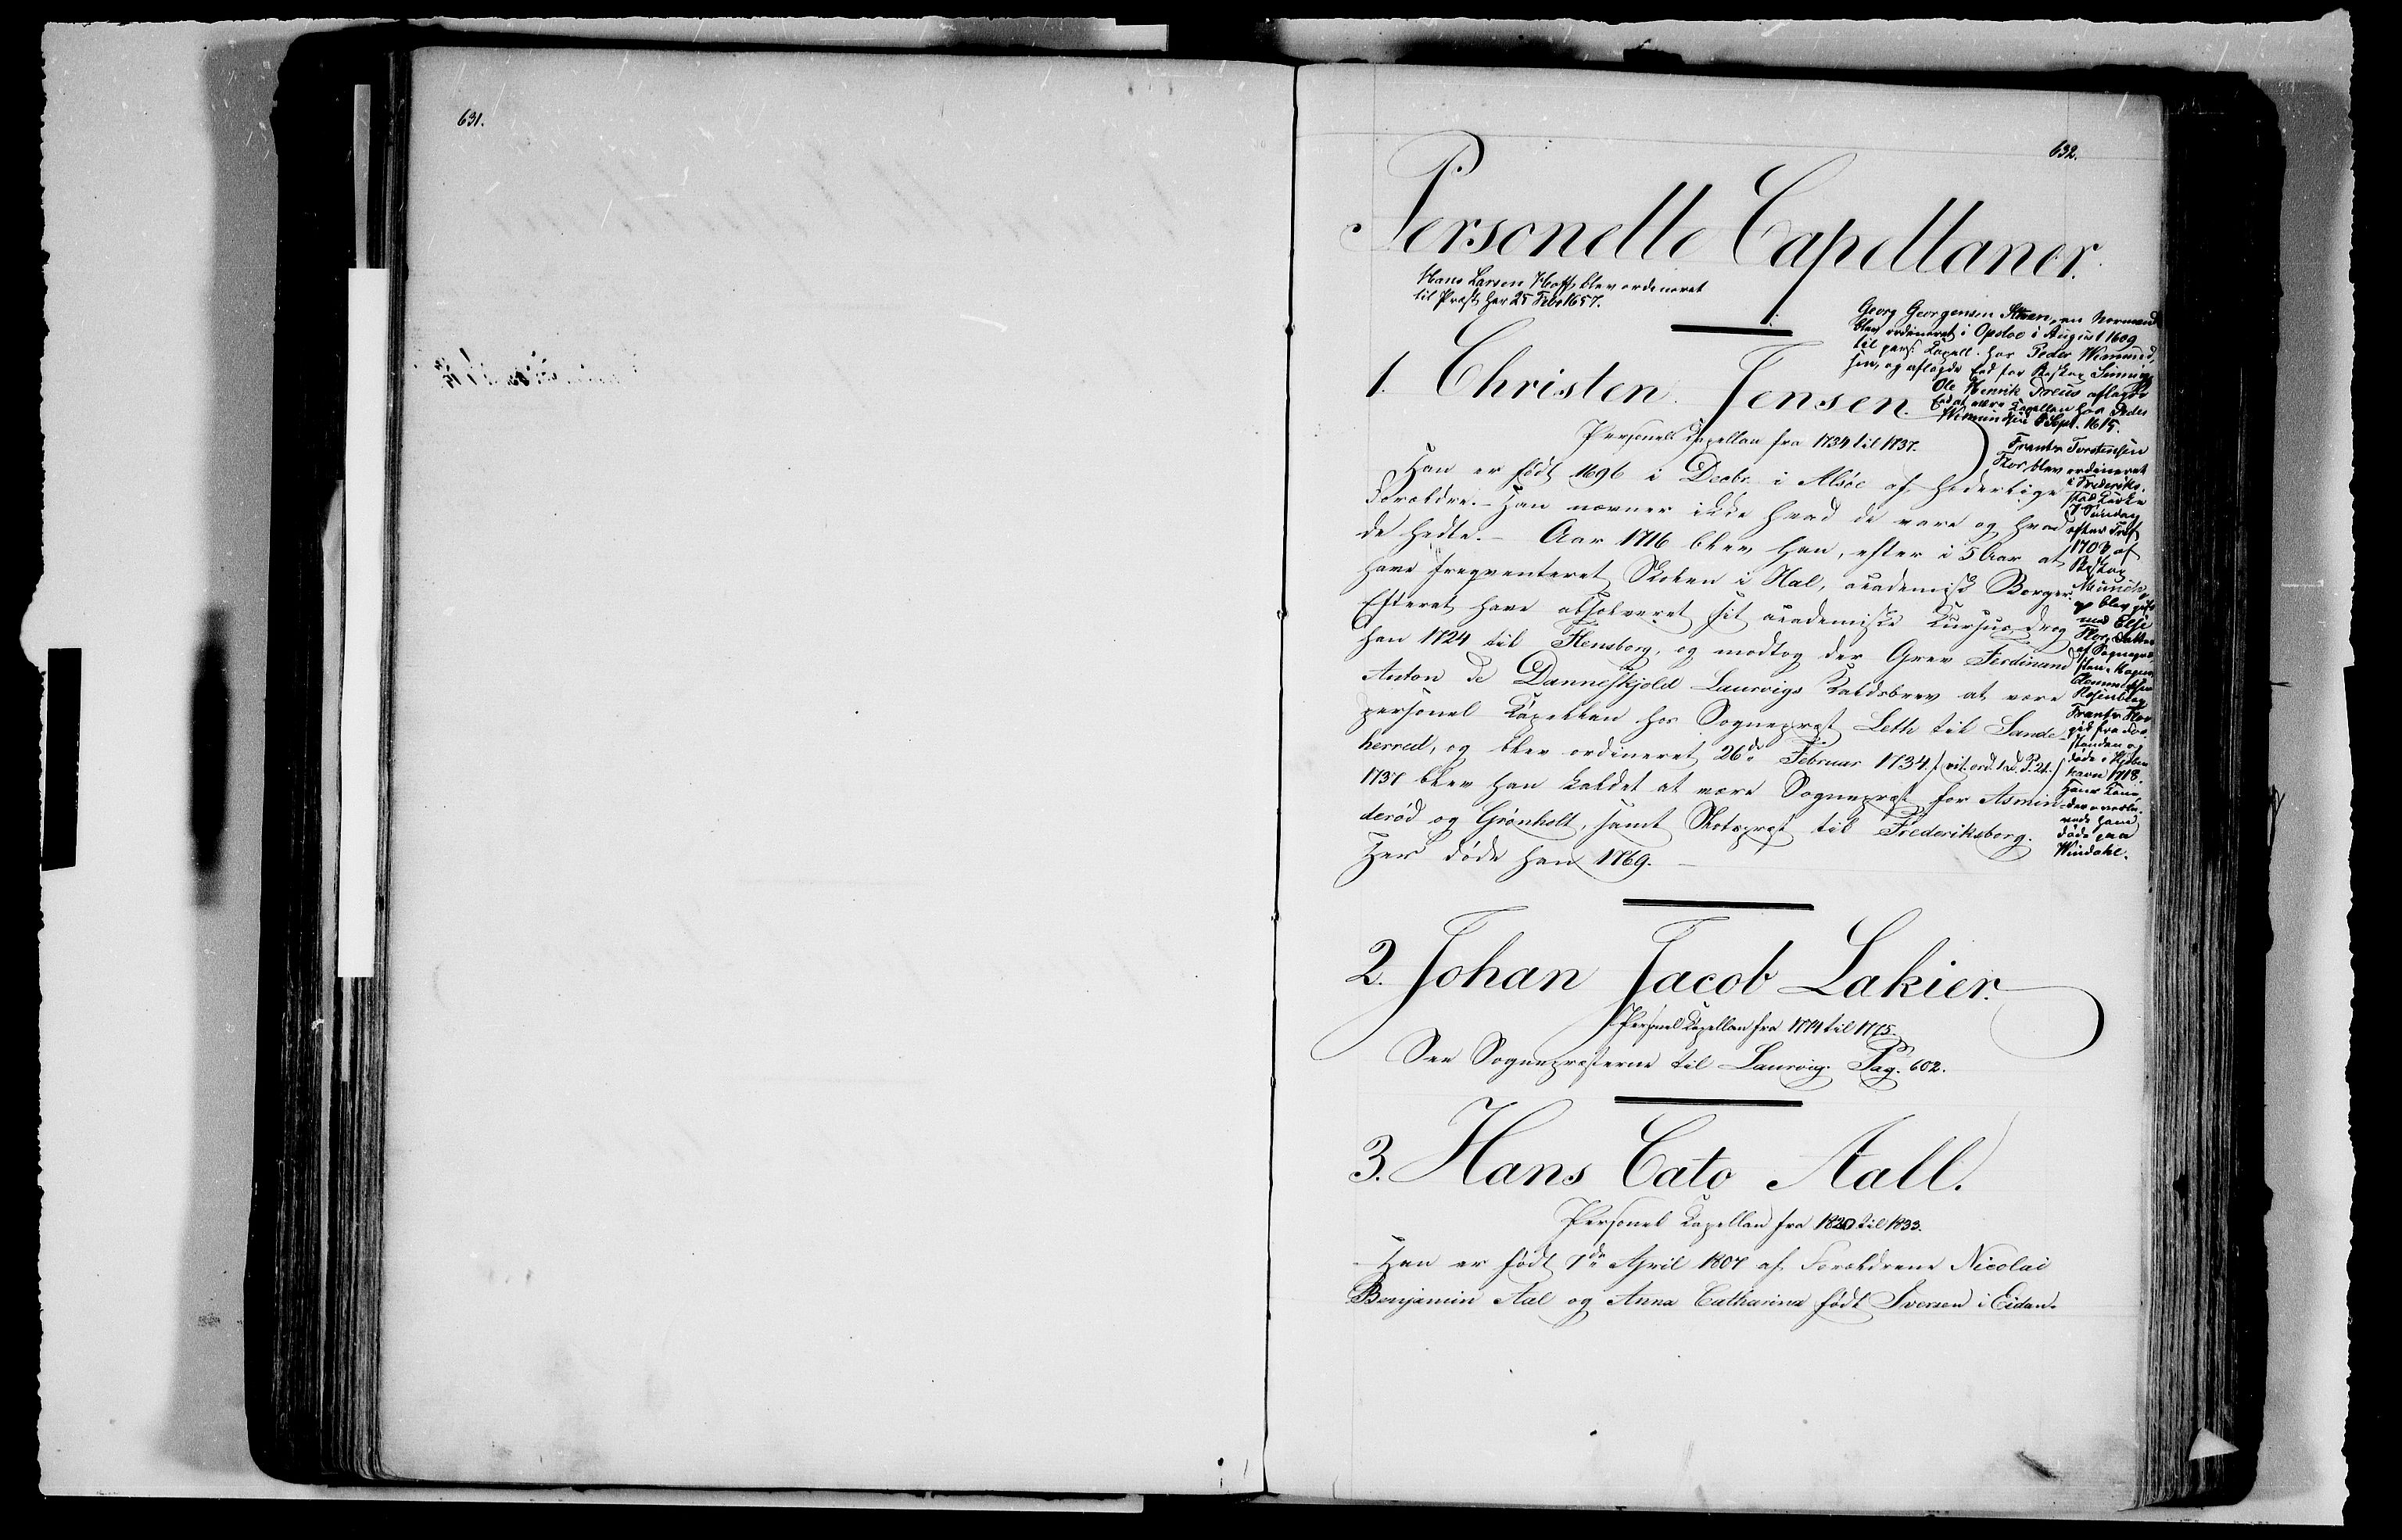 631.
632.
Personelle Capellaner.
Hans Larsen Hoff, blev ordineret
til Præst her 25 Febr 1657.
Georg Georgensen, en Normand
blev ordineret i Opsloe i August 1609
til pers. Capell. hos Peder Wemund
sen, og aflagde Eed for Biskop
Ole Henrik aflagde
Eed at være Capellan hos Peder
Wemundsen Sept. 1615.
1. Christen Jensen.
Personel Capellan fra 1734 til 1737.
Han er født 1696 i Decbr. i Alsöe af hæderlige
Forældre. - Han nævner ikke hvad de vare og hvad
de hedte. - Aar 1716 blev han, efter i 5 Aar at
have frequenteret Skolen i Hal, academisk Borger.
Efterat have absolveret sit academiske Cursus, drog
han 1724 til Flensborg, og modtog der Grev Ferdinand
Anton de Danneskjold Laurvigs Kaldsbrev at være
personel Capellan hos Sognepræst Leth til Sande-
herred, og blev ordineret 26de Februar 1734. /: vit. ord. P. 21. :/
1737 blev han kaldet at være Sognepræst for Asmin-
derød og Grønholt, samt Slotspræst til Frederiksborg.
Her døde han 1769. -
Frantz Torstensen
Flor, blev ordineret
i Frederiks-
stad Kirke
7 Søndag
efter Tref
1703 af
Biskop
Munch,
og blev gift
med Else
Flor, Datter
af Sognepræ-
sten Hagen
Rosenberg
Frantz Flor
gik fra
standen og
døde i Kjøben-
havn 1718.
Hans Kone
døde paa
Windahl.
2. Johan Jacob Lakier.
Personel Capellan fra 1774 til 1775.
See Sognepræsterne til Laurvig. Pag. 602.
3. Hans Cato Aall.
Personel Capellan fra 1830 til 1833.
Han er født 7de April 1807 af Forældrene Nicolai
Benjamin Aal og Anna Catharina født Iversen i Eidan-